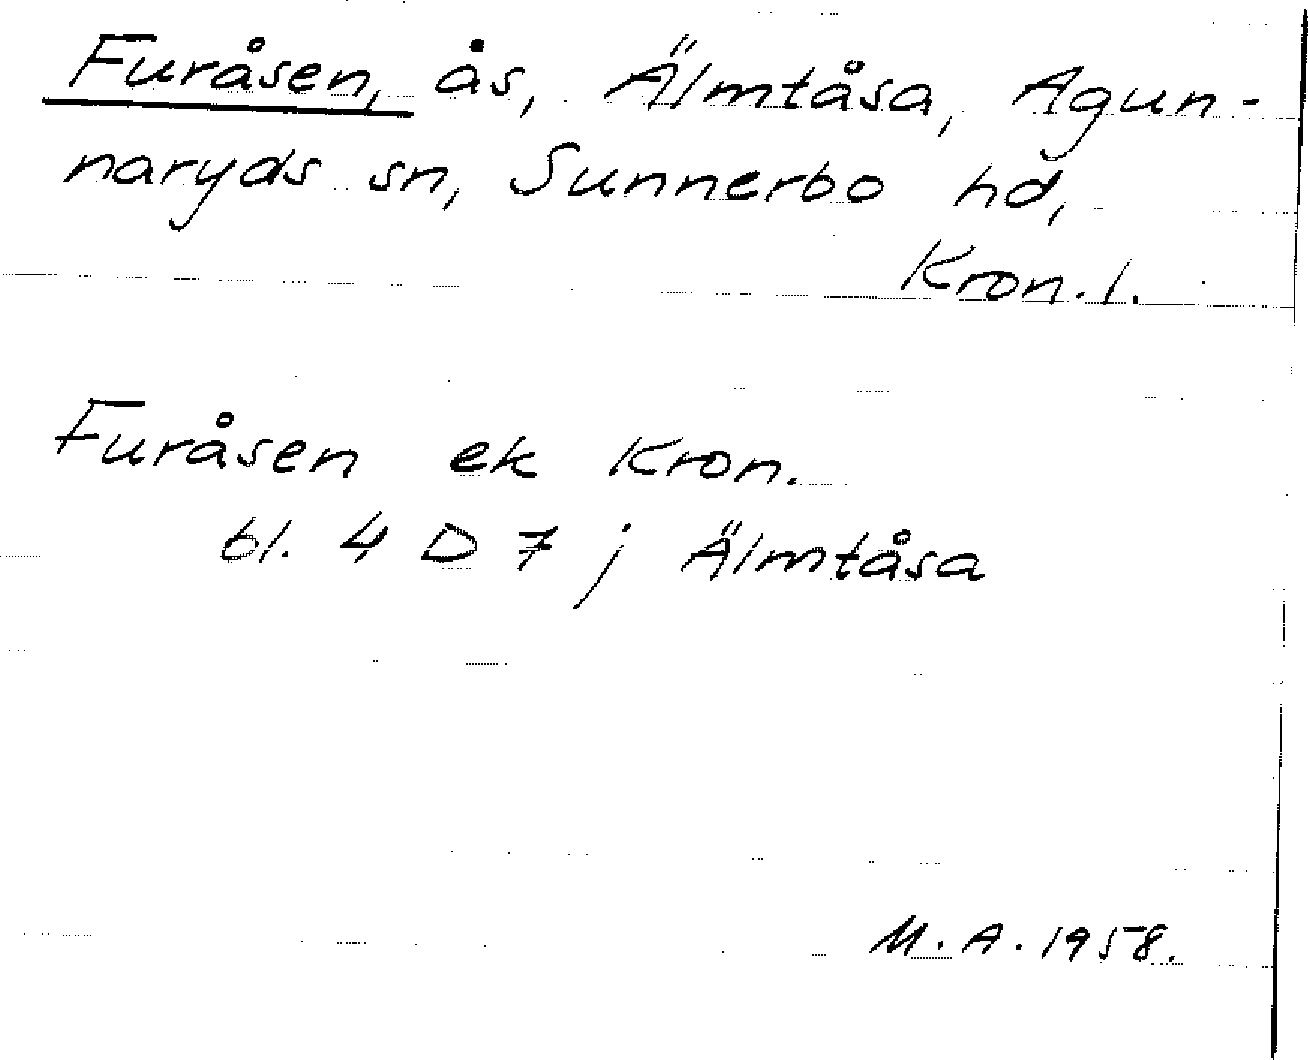 Furåsen, ås, Älmtåsa, Agun-
naryds sn, Sunnerbo hd,
Kron. l.
Furåsen ek Kron.
bl. 4 D 7 j Älmtåsa
M. A. 1958.